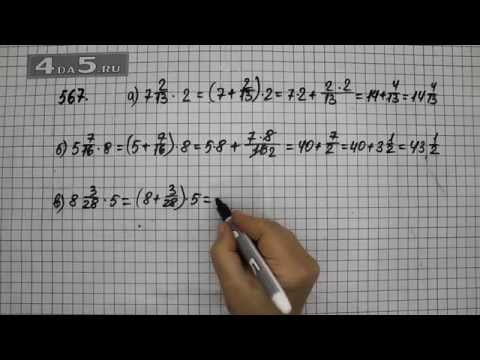 4DA5.RU
567. а) 7 2/13 · 2 = (7 + 2/13) · 2 = 7·2 + 2·2/13 = 14 + 4/13 = 14 4/13
б) 5 7/16 · 8 = (5 + 7/16) · 8 = 5·8 + 7·8/16 2 = 40 + 7/2 = 40 + 3 1/2 = 43 1/2
в) 8 3/28 · 5 = (8 + 3/28) · 5 =